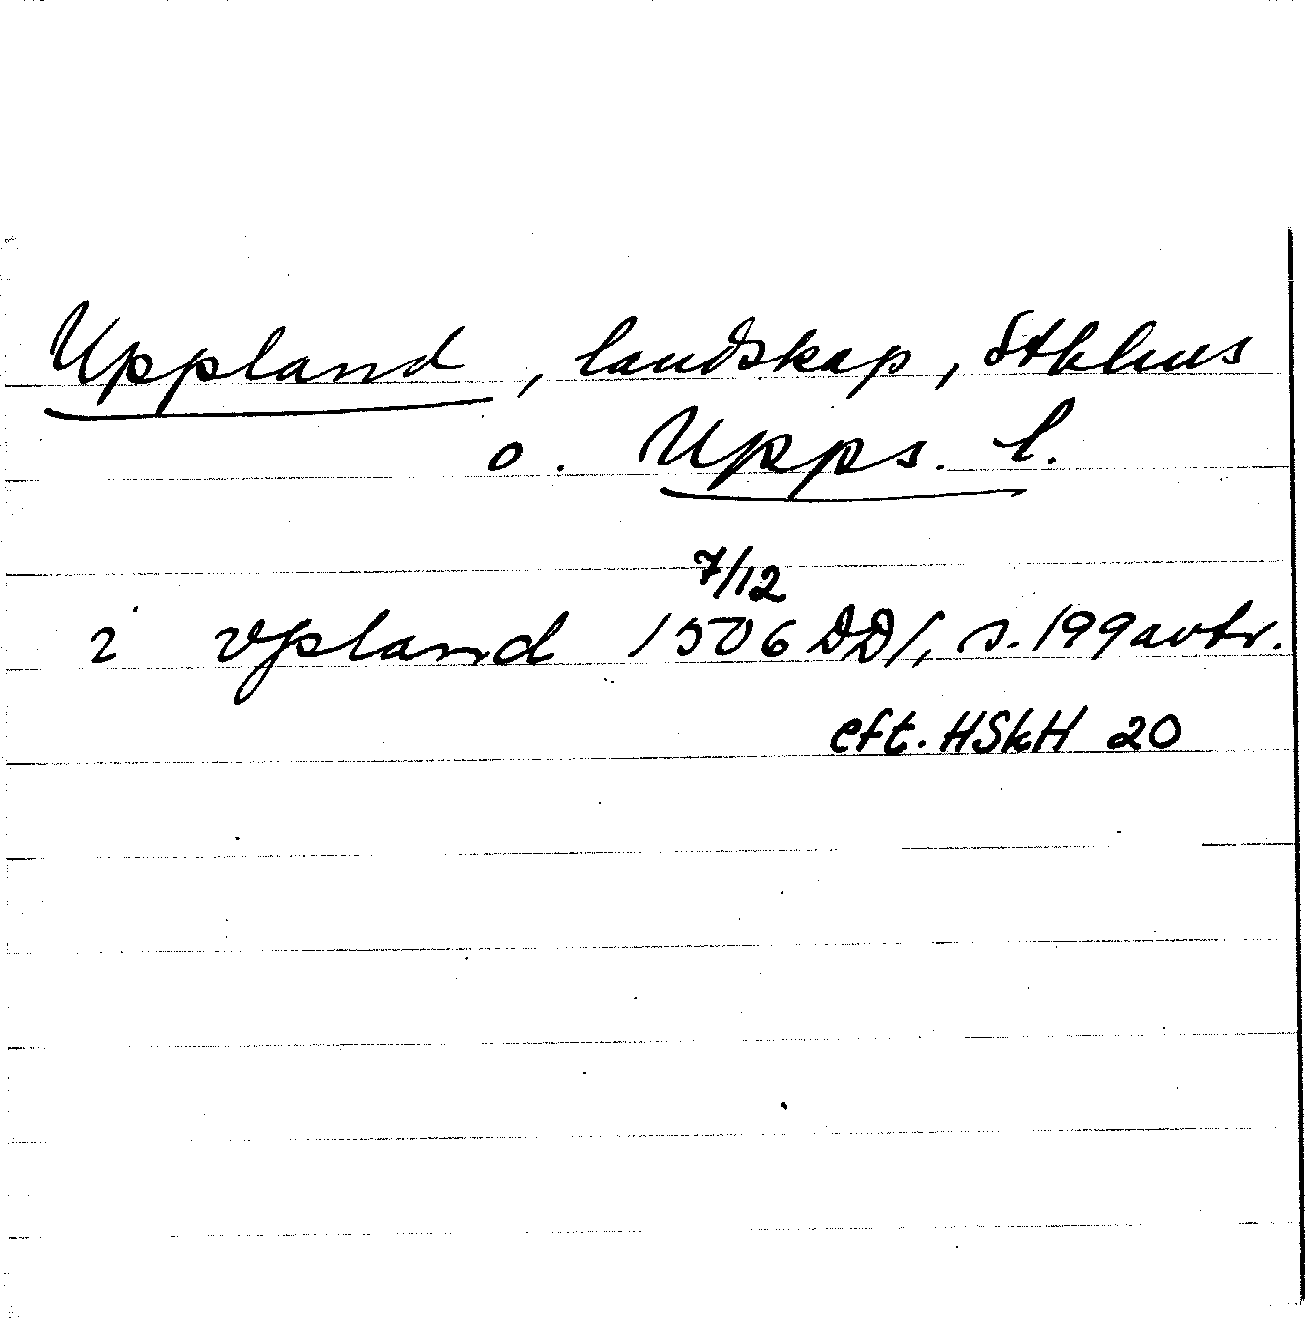 Uppland, landskap, Sthlms
o. Upps. l.
7/12
i vpland 1506 DD1, s. 199 avtr.
eft. HSkH 20